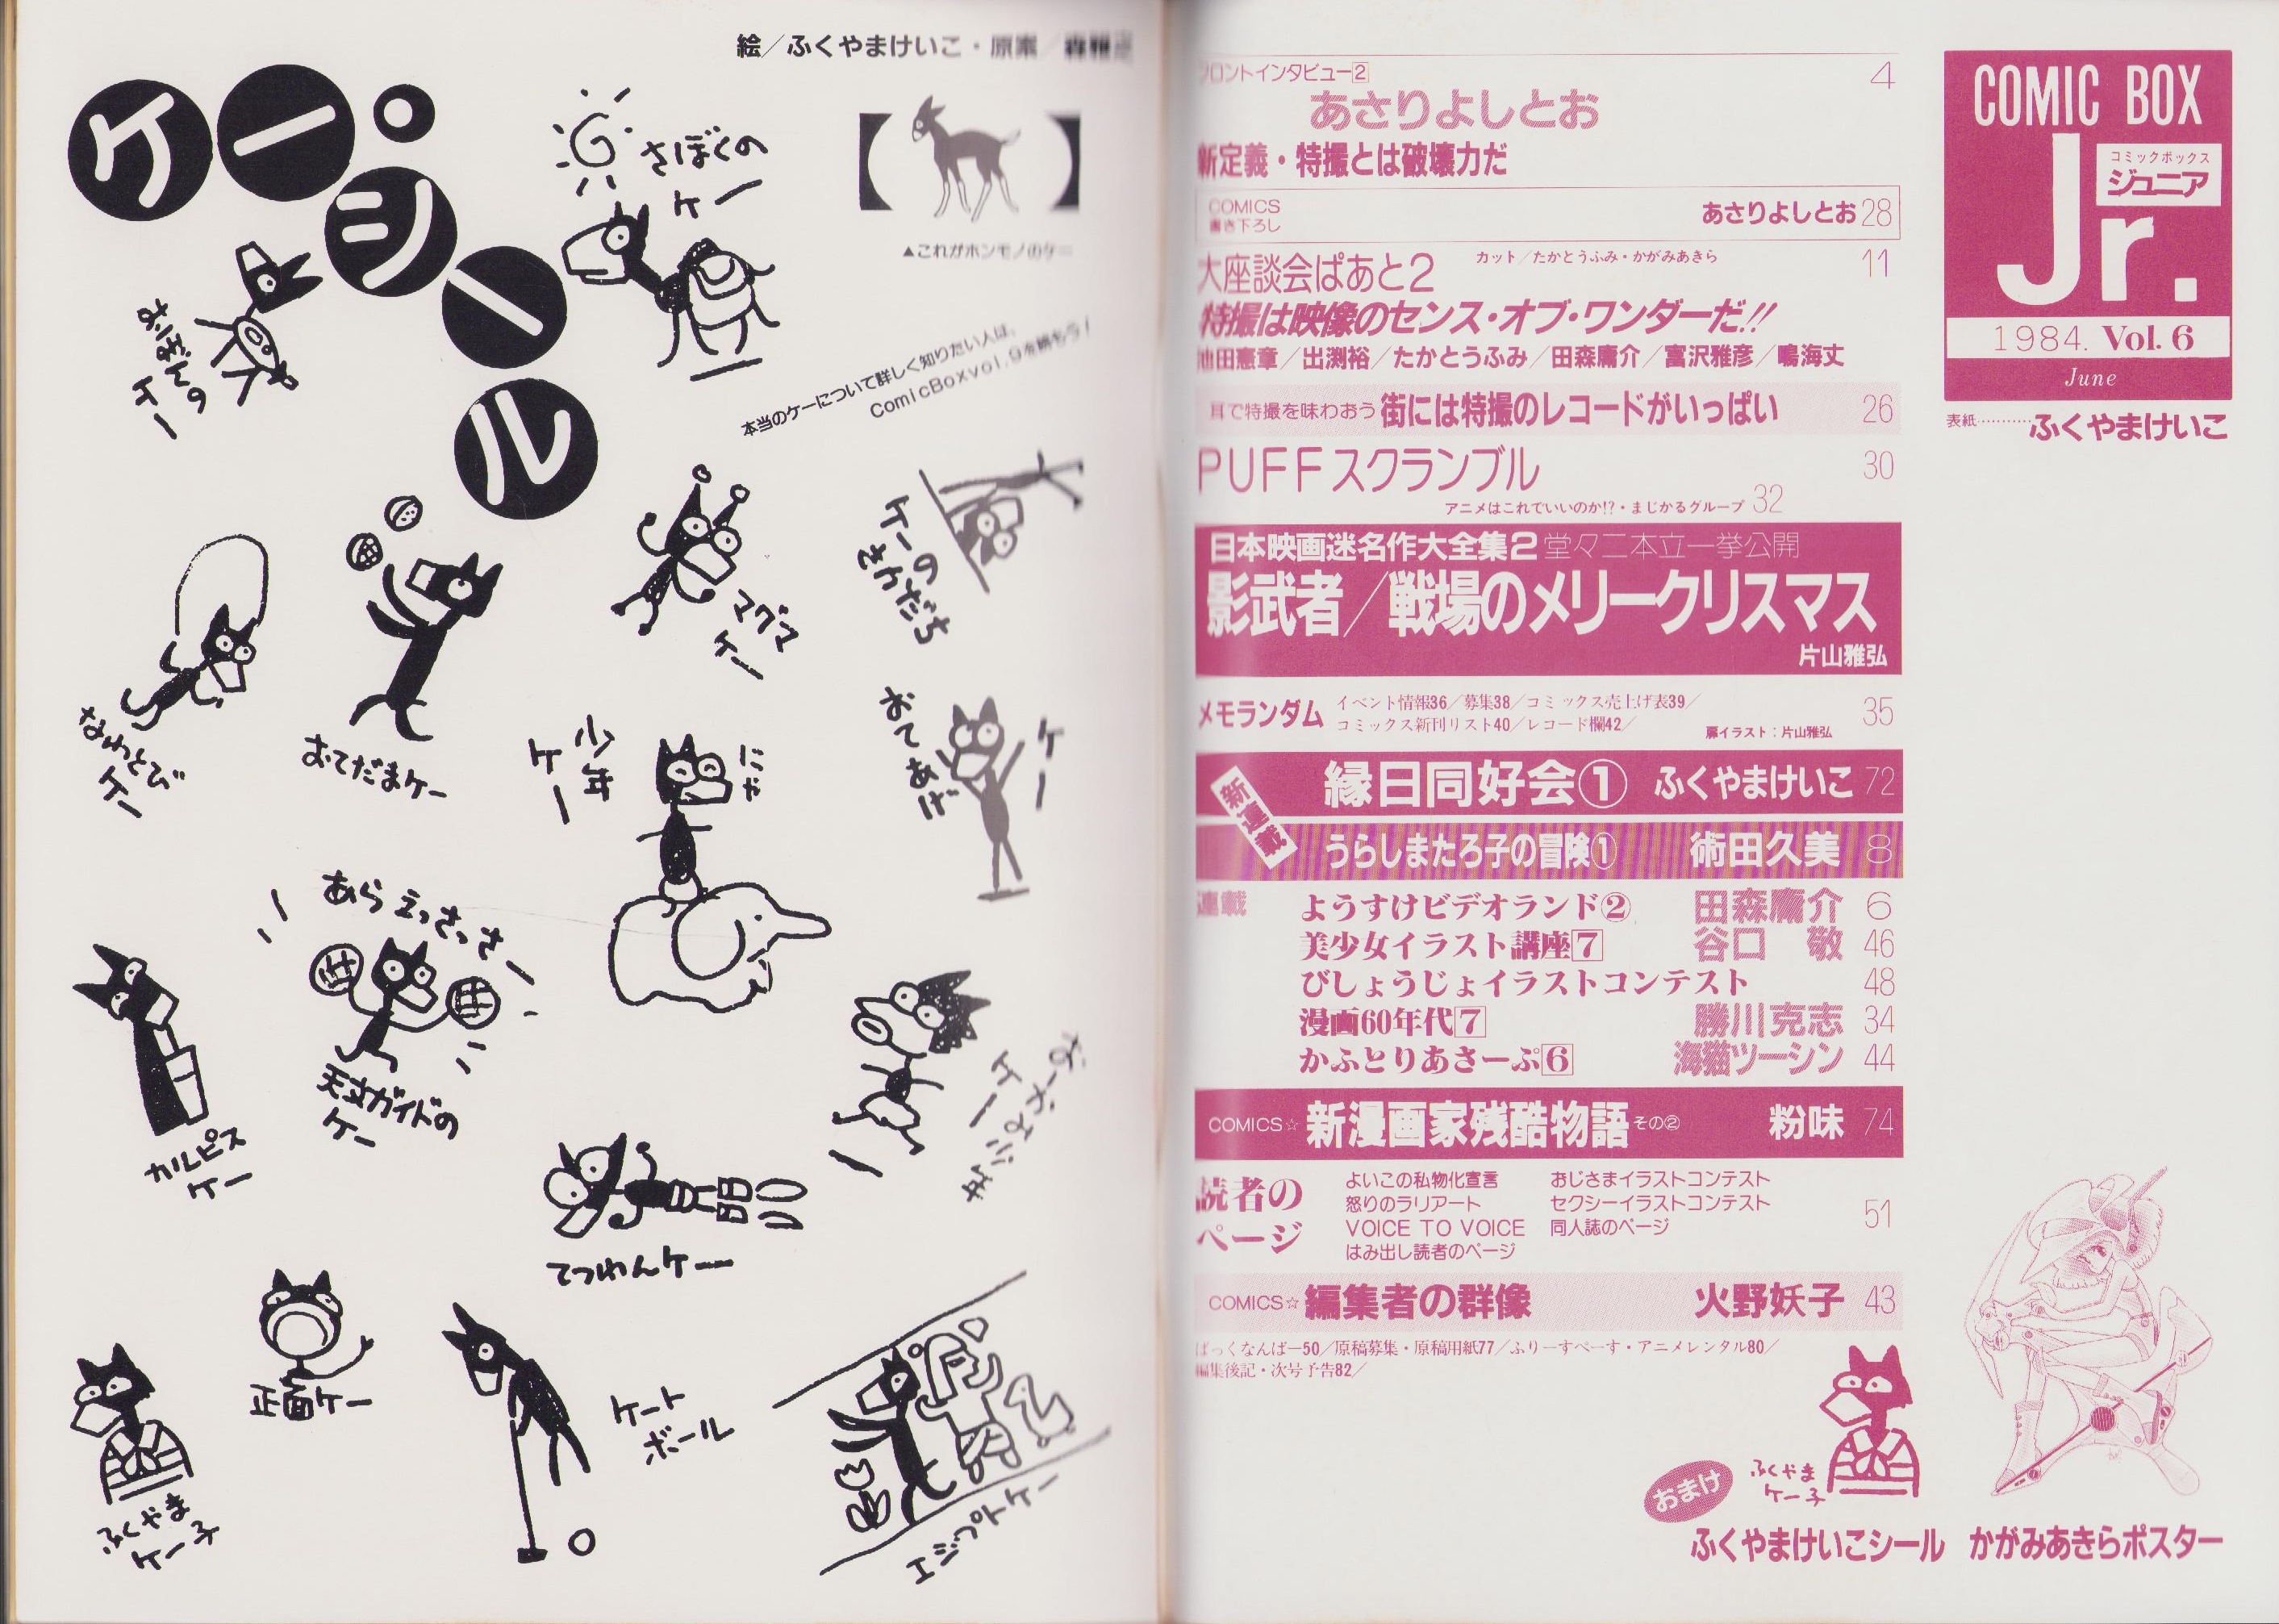 絵／ふくやまけいこ・原案／森雅
ケー・シール
さばくの
ケー
▲これがホンモノのケー
おぼんの
ケー
本当のケーについて詳しく知りたい人は、
ComicBoxvol.9を読もう！
なわとび
ケー
おてだまケー
マグマ
ケー
ケーの
さかだち
少年
ケー
にゃ
おてあげ
ケー
あらえっさっさー
カルピス
ケー
天才ガイドの
ケー
てつわんケー
ケー
ふくやま
ケー子
正面ケー
ケート
ボール
エジプトケー
フロントインタビュー2
4
あさりよしとお
新定義・特撮とは破壊力だ
COMICS
書き下ろし
あさりよしとお28
大座談会ぱあと2
カット／たかとうふみ・かがみあきら
11
特撮は映像のセンス・オブ・ワンダーだ!!
池田憲章／出渕裕／たかとうふみ／田森庸介／富沢雅彦／鳴海丈
耳で特撮を味わおう 街には特撮のレコードがいっぱい 26
PUFFスクランブル 30
アニメはこれでいいのか!?・まじかるグループ 32
日本映画迷名作大全集2 堂々二本立一挙公開
影武者／戦場のメリークリスマス
片山雅弘
メモランダム
イベント情報36／募集38／コミックス売上げ表39／
コミックス新刊リスト40／レコード欄42／
扉イラスト：片山雅弘
35
新連載
縁日同好会① ふくやまけいこ 72
うらしまたろ子の冒険① 術田久美 8
連載
ようすけビデオランド② 田森庸介 6
美少女イラスト講座7 谷口 敬 46
びしょうじょイラストコンテスト 48
漫画60年代7 勝川克志 34
かふとりあさーぷ6 海猫ツーシン 44
COMICS☆ 新漫画家残酷物語 その② 粉味 74
読者の
ページ
よいこの私物化宣言
怒りのラリアート
VOICE TO VOICE
はみ出し読者のページ
おじさまイラストコンテスト
セクシーイラストコンテスト
同人誌のページ
51
COMICS☆ 編集者の群像 火野妖子 43
ばっくなんばー50／原稿募集・原稿用紙77／ふりーすぺーす・アニメレンタル80／
編集後記・次号予告82／
COMIC BOX
Jr.
コミックボックス
ジュニア
1984. Vol. 6
June
表紙………ふくやまけいこ
ふくやま
ケー子
おまけ
ふくやまけいこシール かがみあきらポスター